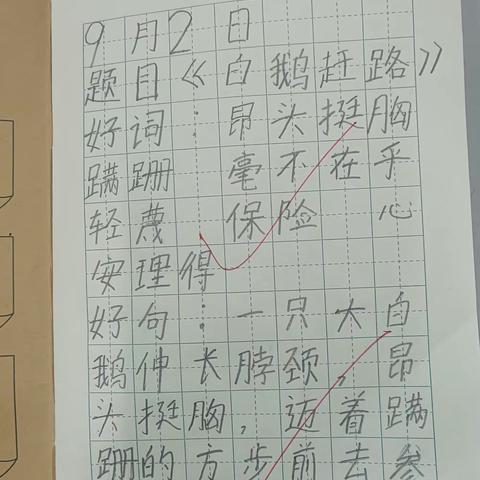 9月2日
题目《白鹅赶路》
好词：昂头挺胸
蹒跚 毫不在乎
轻蔑 保险 心
安理得
好句：一只大白
鹅伸长脖颈，昂
头挺胸，迈着蹒
跚的方步前去参